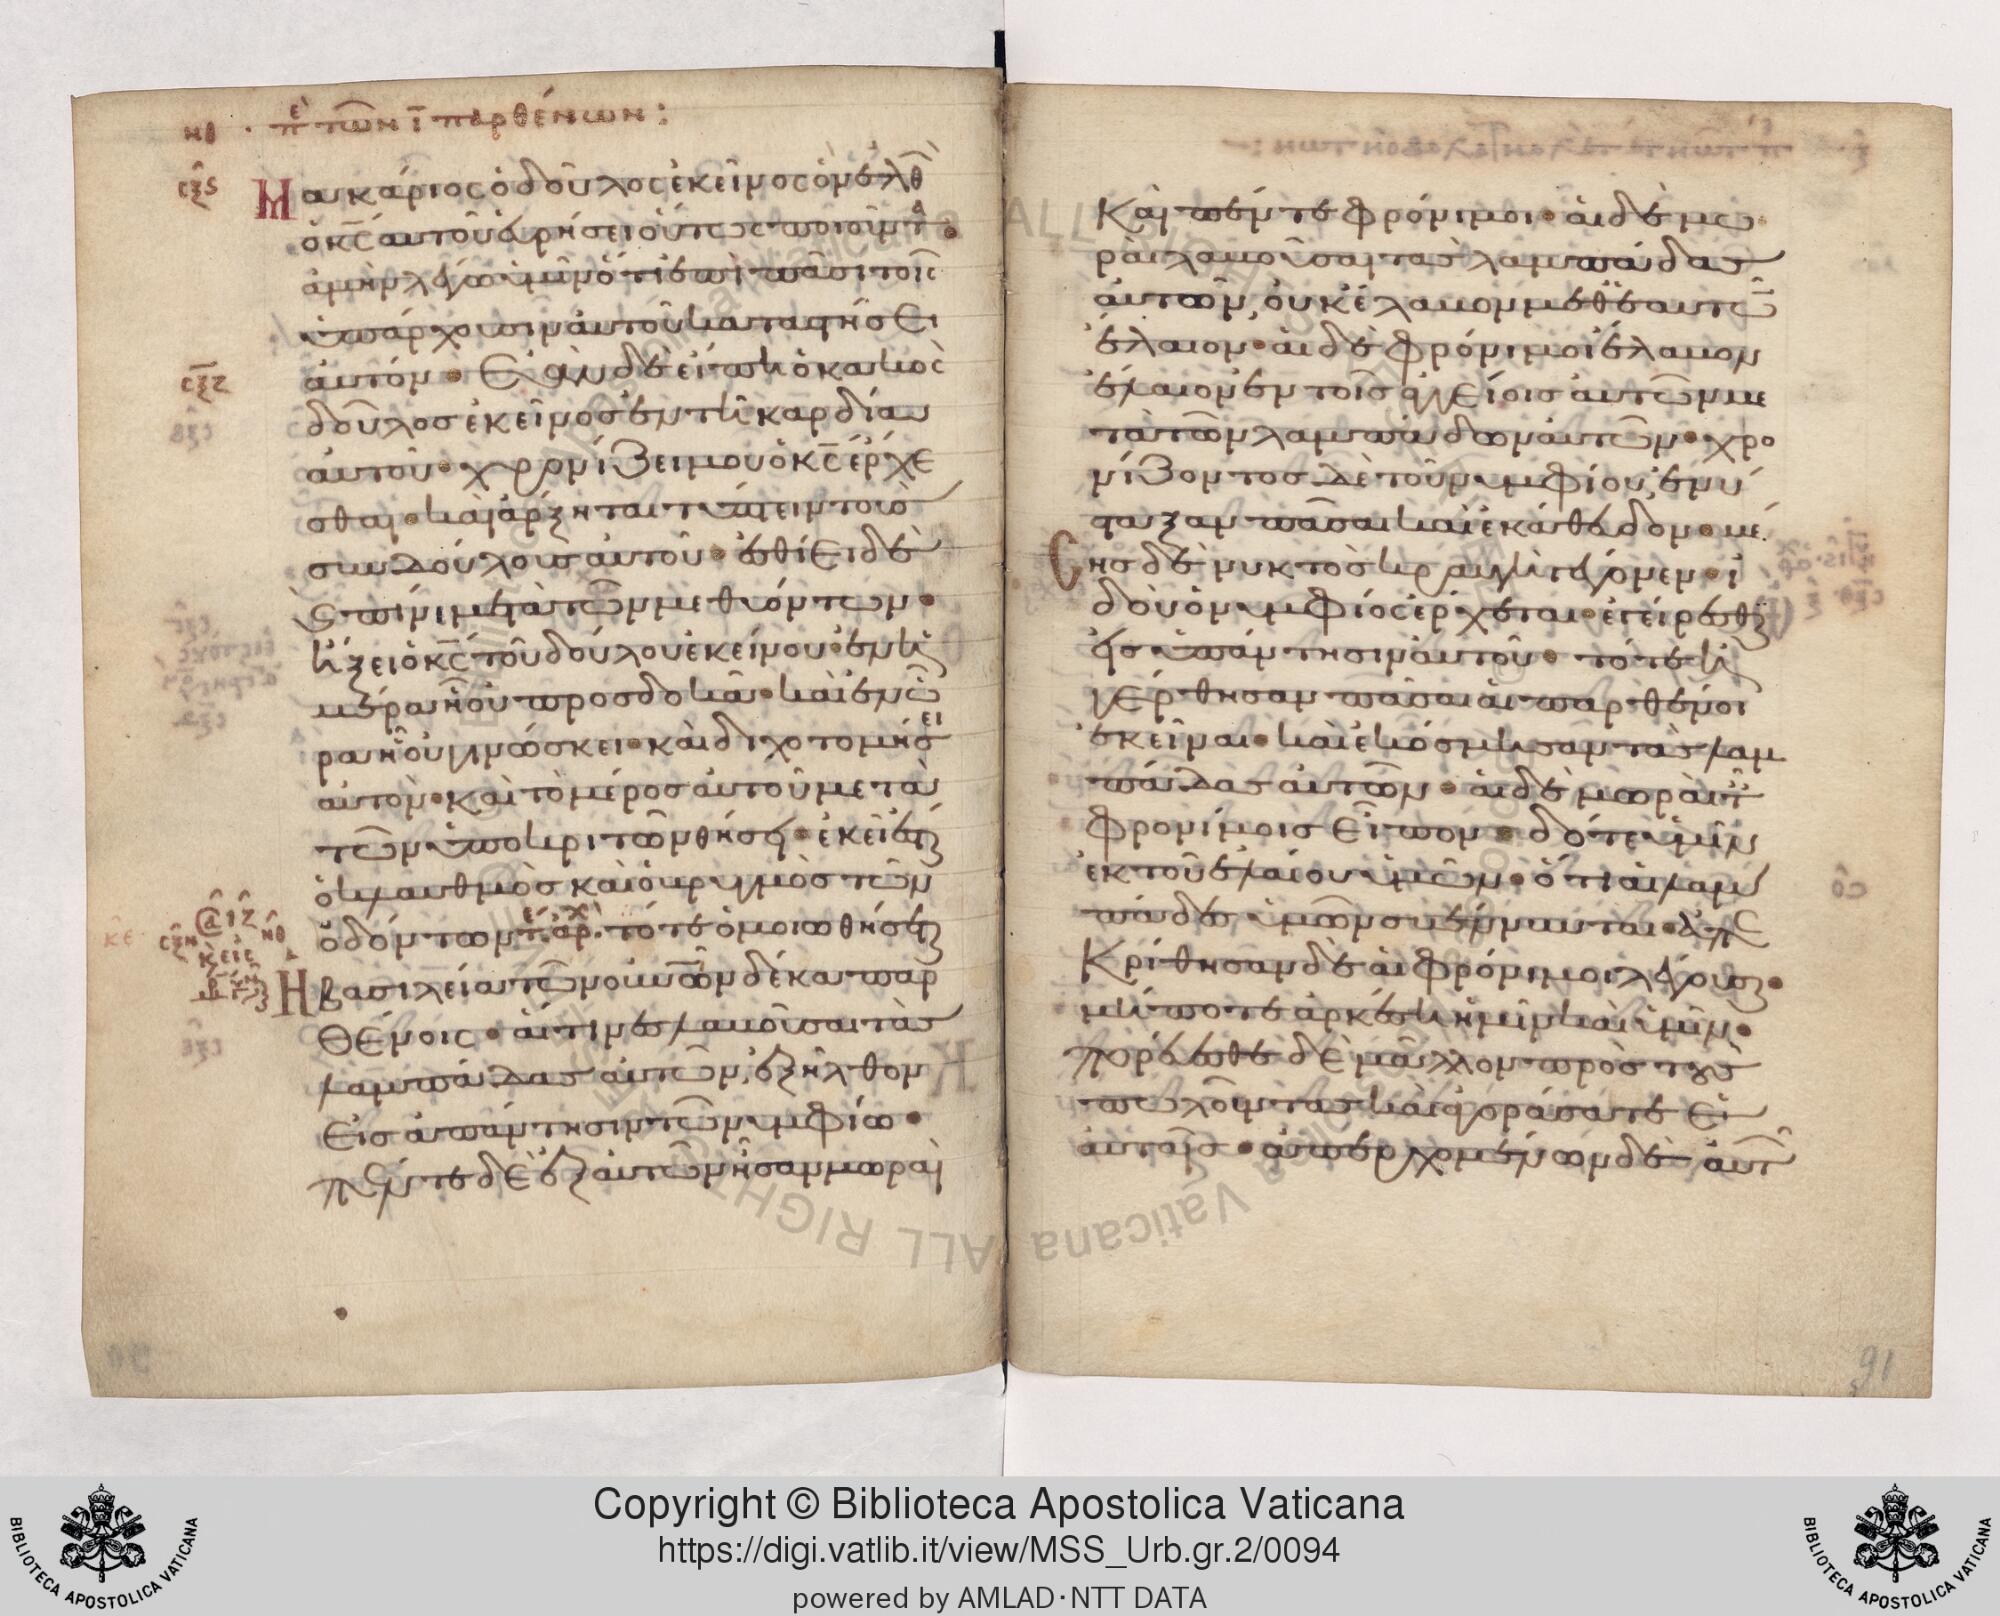 νθ · πε τῶν ῑ παρθένων:
σξς Μακάριος ὁ δοῦλος ἐκεῖνος ὃν ἐλθ
ὁ κ̅ς̅ αὐτοῦ εὑρήσει οὕτως ποιοῦντα·
ἀμὴν λέγω ὑμῖν ὅτι ἐπὶ πᾶσι τοῖς
ὑπάρχουσιν αὐτοῦ καταστήσει
σξζ αὐτόν· Ἐὰν δὲ εἴπη ὁ κακὸς
δοῦλος ἐκεῖνος ἐν τῆ καρδία
αὐτοῦ· χρονίζει μου ὁ κ̅ς̅ ἔρχε
σθαι· καὶ ἄρξηται τύπτειν τοὺς
συνδούλους αὐτοῦ· ἐσθίει δὲ
καὶ πίνει μετὰ τῶν μεθυόντων·
ἥξει ὁ κ̅ς̅ τοῦ δούλου ἐκείνου· ἐν ἡ
μέρα ἧ οὐ προσδοκᾶ· καὶ ἐν ὥ
ρα ἧ οὐ γινώσκει· καὶ διχοτομήσει
αὐτὸν· καὶ τὸ μέρος αὐτοῦ μετὰ
τῶν ὑποκριτῶν θήσει· ἐκεῖ ἔσται
ὁ κλαυθμὸς καὶ ὁ βρυγμὸς τῶν
σξη νθ ὀδόντων· τότε ὁμοιωθήσεται
Ἡ βασιλεία τῶν οὐνῶν δέκα παρ
θένοις· αἵτινες λαβοῦσαι τὰς
λαμπάδας αὐτῶν, ἐξῆλθον
εἰς ἀπάντησιν τῶ νυμφίω·
πέντε δὲ ἐξ αὐτῶν ἦσαν μωραὶ
Καὶ πέντε φρόνιμοι· αἱ δὲ μω
ραὶ λαβοῦσαι τὰς λαμπάδας
αὐτῶν, οὐκ ἔλαβον μεθ ἑαυτῶν
ἔλαιον· αἱ δὲ φρόνιμοι ἔλαβον
ἔλαιον ἐν τοῖς ἀγγείοις αὐτῶν με
τὰ τῶν λαμπάδων αὐτῶν· χρο
νίζοντος δὲ τοῦ νυμφίου, ἐνύ
σταξαν πᾶσαι καὶ ἐκάθευδον· μέ
σης δὲ νυκτὸς κραυγὴ γέγονεν· ἰ
δοὺ ὁ νυμφίος ἔρχεται· ἐξέρχεσθε
εἰς ὑπάντησιν αὐτοῦ· τότε ἠ
γέρθησαν πᾶσαι αἱ παρθένοι
ἐκεῖναι· καὶ ἐκόσμησαν τὰς λαμ
πάδας αὐτῶν· αἱ δὲ μωραὶ τ
φρονίμοις εἶπον· δότε ἡμῖν
ἐκ τοῦ ἐλαίου ὑμῶν· ὅτι αἱ λαμ
πάδες ἡμῶν σβέννυνται· ἀπε
Κρίθησαν δὲ αἱ φρόνιμοι λέγουσαι·
μήποτε ἀρκέση ἡμῖν καὶ ὑμῖν·
πορεύεσθε δὲ μᾶλλον πρὸς τοὺς
πωλοῦντας καὶ ἀγοράσατε ἑ
αυταῖς· ἀπερχομένων δὲ αὐτ
91
Copyright © Biblioteca Apostolica Vaticana
https://digi.vatlib.it/view/MSS_Urb.gr.2/0094
powered by AMLAD·NTT DATA
BIBLIOTECA APOSTOLICA VATICANA
BIBLIOTECA APOSTOLICA VATICANA